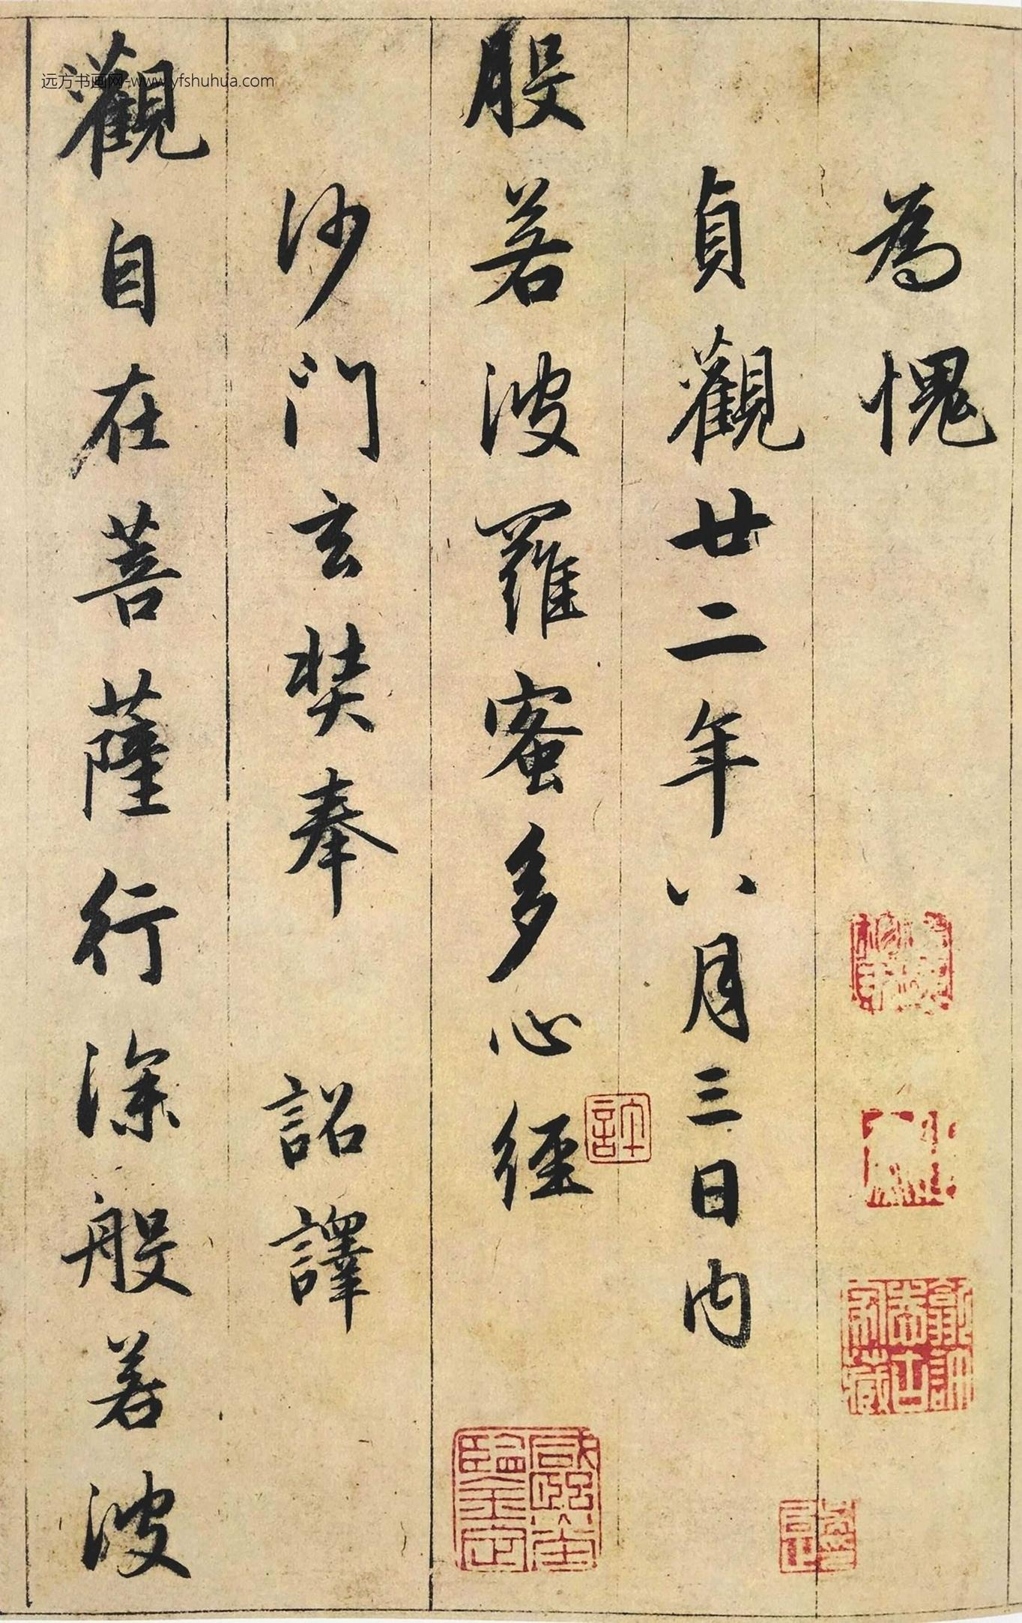 為愧
貞觀廿二年八月三日內
般若波羅蜜多心經
沙門玄奘奉 詔譯
觀自在菩薩行深般若波
远方书画网-www.yfshuhua.com